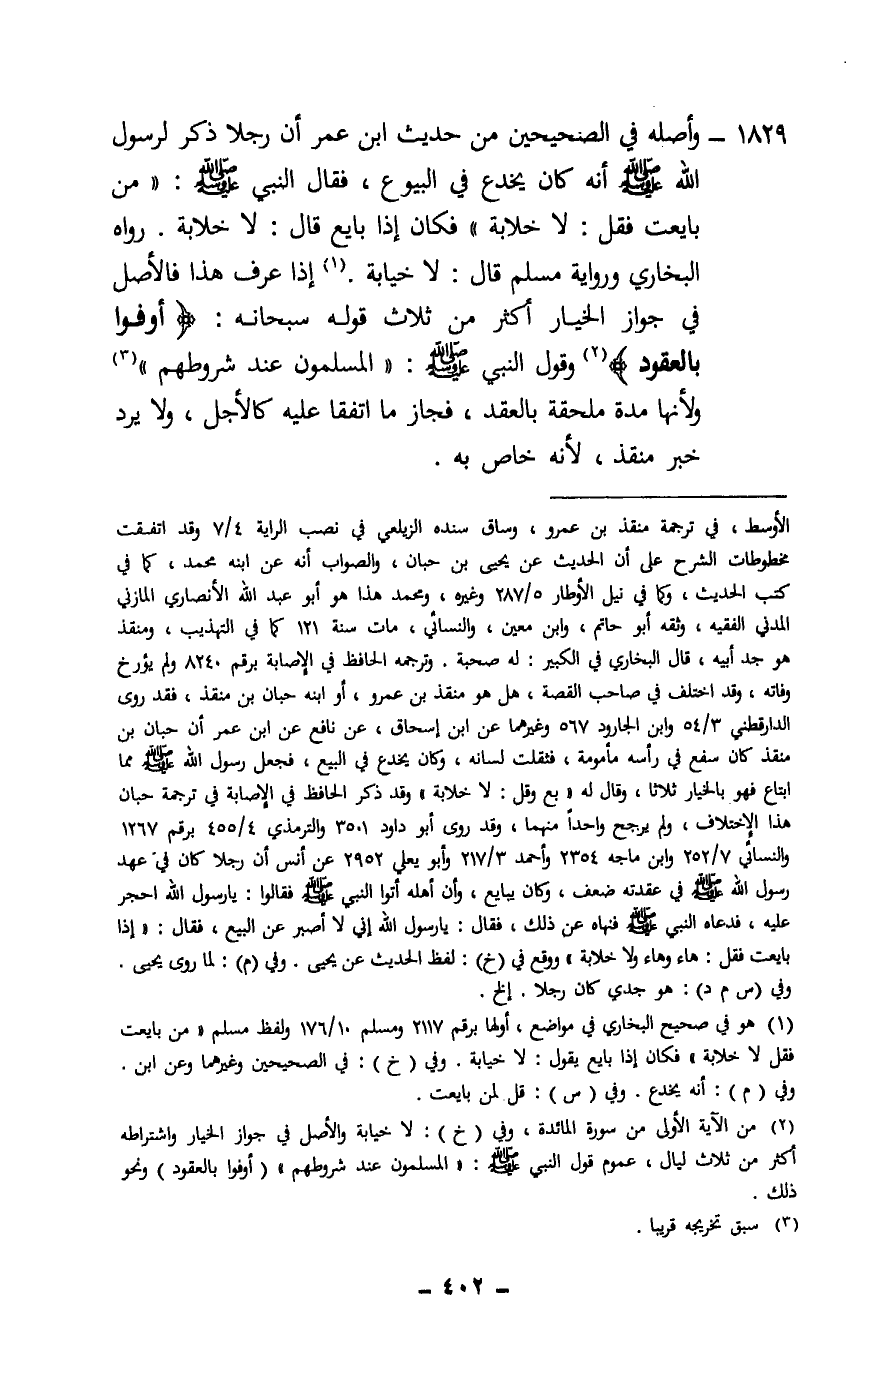 ١٨٢٩ ــ وأصله في الصحيحين من حديث ابن عمر أن رجلا ذكر لرسول
الله ﷺ أنه كان يخدع في البيوع ، فقال النبي ﷺ : « من
بايعت فقل : لا خلابة » فكان إذا بايع قال : لا خلابة . رواه
البخاري ورواية مسلم قال : لا خيابة .(١) إذا عرف هذا فالأصل
في جواز الخيـار أكثر من ثلاث قولـه سبحانـه : ﴿ أوفـوا
بالعقود ﴾(٢) وقول النبي ﷺ : « المسلمون عند شروطهم »(٣)
ولأنها مدة ملحقة بالعقد ، فجاز ما اتفقا عليه كالأجل ، ولا يرد
خبر منقذ ، لأنه خاص به .
الأوسط ، في ترجمة منقذ بن عمرو ، وساق سنده الزيلعي في نصب الراية ٧/٤ وقد اتفـقت
مخطوطات الشرح على أن الحديث عن يحيى بن حبان ، والصواب أنه عن ابنه محمد ، كما في
كتب الحديث ، وكما في نيل الأوطار ٢٨٧/٥ وغيره ، ومحمد هذا هو أبو عبد الله الأنصاري المازني
المدني الفقيه ، وثقه أبو حاتم ، وابن معين ، والنسائي ، مات سنة ١٢١ كما في التهذيب ، ومنقذ
هو جد أبيه ، قال البخاري في الكبير : له صحبة . وترجمه الحافظ في الإصابة برقم ٨٢٤٠ ولم يؤرخ
وفاته ، وقد اختلف في صاحب القصة ، هل هو منقذ بن عمرو ، أو ابنه حبان بن منقذ ، فقد روى
الدارقطني ٥٤/٣ وابن الجارود ٥٦٧ وغيرهما عن ابن إسحاق ، عن نافع عن ابن عمر أن حبان بن
منقذ كان سفع في رأسه مأمومة ، فثقلت لسانه ، وكان يخدع في البيع ، فجعل رسول الله ﷺ مما
ابتاع فهو بالخيار ثلاثا ، وقال له « بع وقل : لا خلابة » وقد ذكر الحافظ في الإصابة في ترجمة حبان
هذا الإختلاف ، ولم يرجح واحداً منهما ، وقد روى أبو داود ٣٥٠١ والترمذي ٤٥٥/٤ برقم ١٢٦٧
والنسائي ٢٥٢/٧ وابن ماجه ٢٣٥٤ وأحمد ٢١٧/٣ وأبو يعلي ٢٩٥٢ عن أنس أن رجلا كان في عهد
رسول الله ﷺ في عقدته ضعف ، وكان يبايع ، وأن أهله أتوا النبي ﷺ فقالوا : يارسول الله احجر
عليه ، فدعاه النبي ﷺ فنهاه عن ذلك ، فقال : يارسول الله إني لا أصبر عن البيع ، فقال : « إذا
بايعت فقل : هاء وهاء ولا خلابة » ووقع في (خ) : لفظ الحديث عن يحيى . وفي (م) : لما روى يحيى .
وفي (س م د) : هو جدي كان رجلا . إلخ .
(١) هو في صحيح البخاري في مواضع ، أولها برقم ٢١١٧ ومسلم ١٧٦/١٠ ولفظ مسلم « من بايعت
فقل لا خلابة » فكان إذا بايع يقول : لا خيابة . وفي ( خ ) : في الصحيحين وغيرهما وعن ابن .
وفي ( م ) : أنه يخدع . وفي ( س ) : قل لمن بايعت .
(٢) من الآية الأولى من سورة المائدة ، وفي ( خ ) : لا خيابة والأصل في جواز الخيار واشتراطه
أكثر من ثلاث ليال ، عموم قول النبي ﷺ : « المسلمون عند شروطهم » ( أوفوا بالعقود ) ونحو
ذلك .
(٣) سبق تخريجه قريبا .
ــ ٤٠٢ ــ